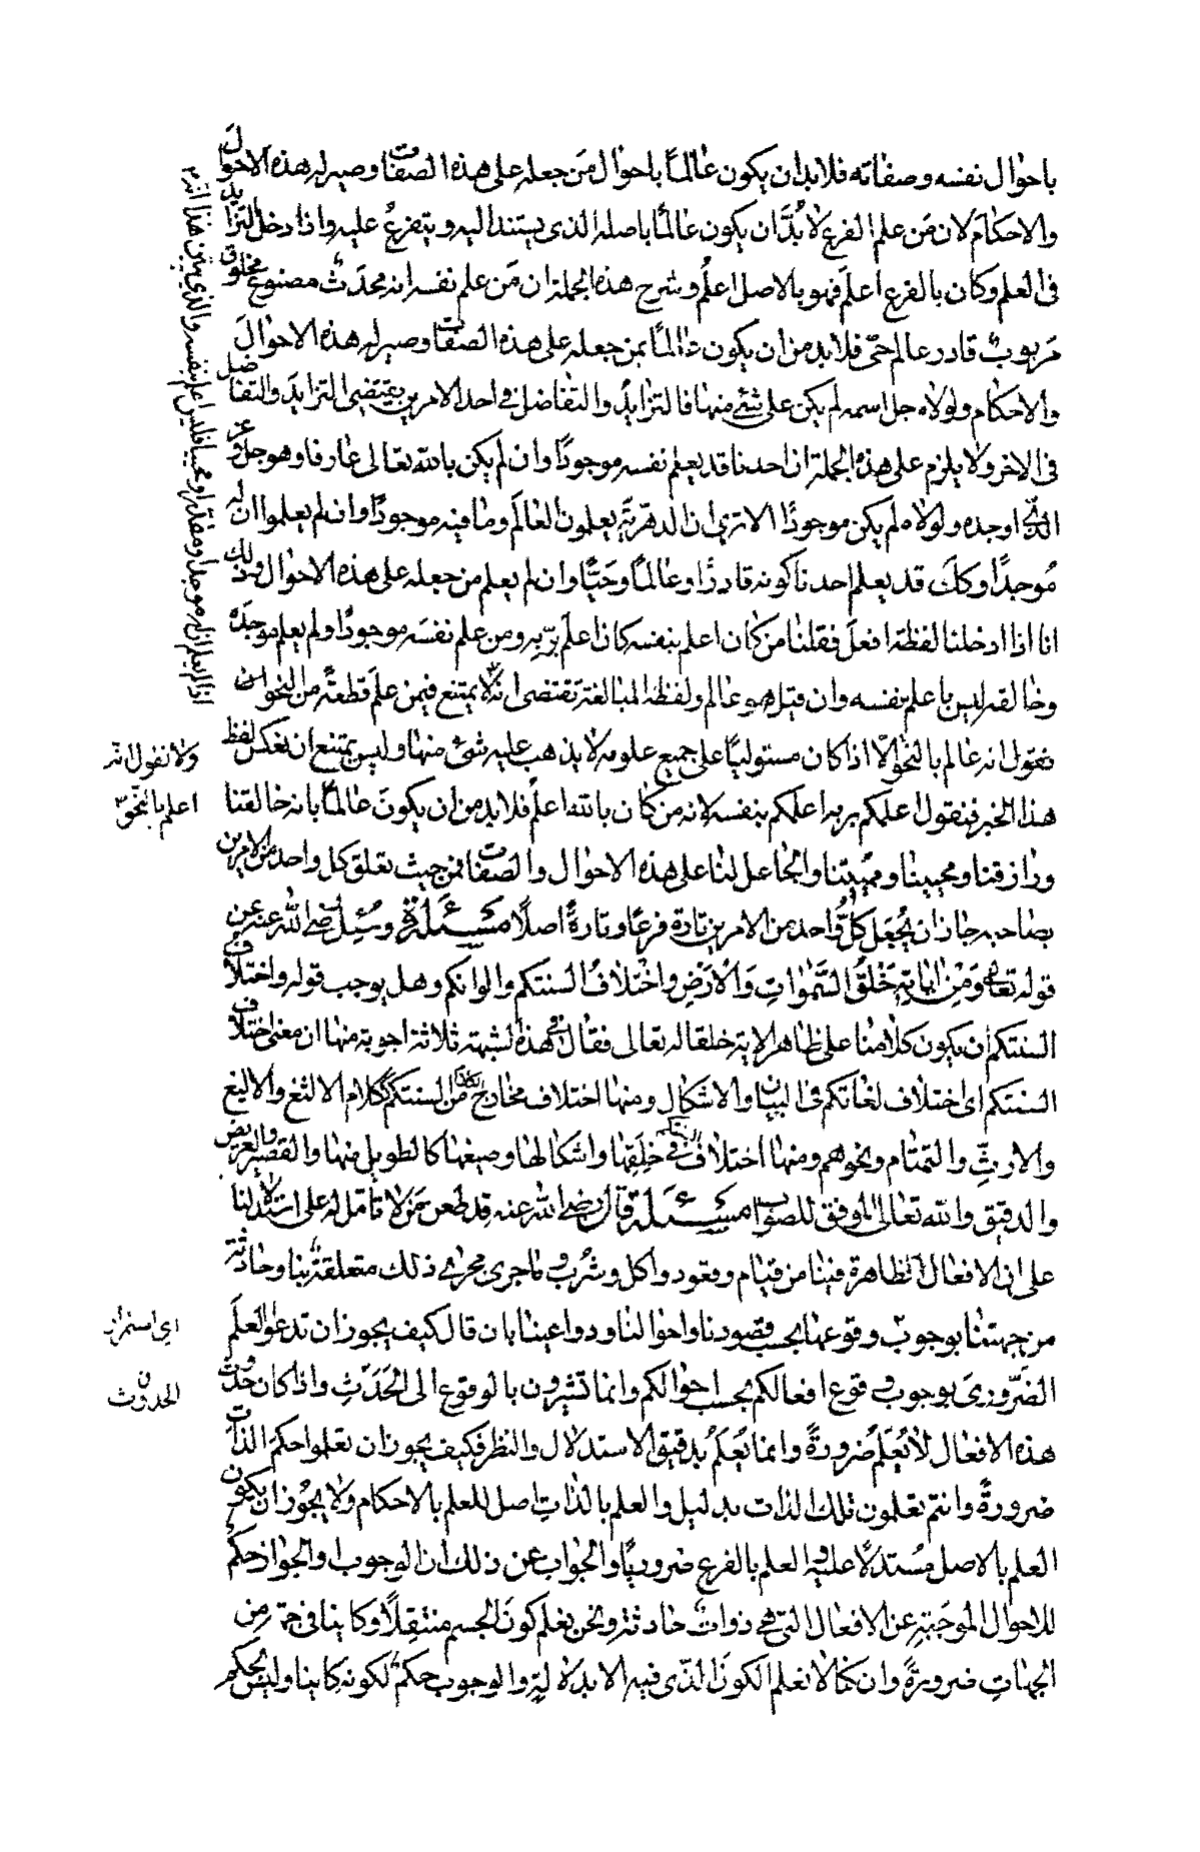 باحوال نفسه وصفاته فلابد ان يكون عالمًا باحوال مَن جعله على هذه الصفات وصيره لهذه الاحوال
والاحكام لان مَن علم الفرع لا بُدَّ ان يكون عالمًا باصله الذى يستند اليه ويتفرعُ عليه واذا دخل التزايد
فى العلم وكان بالفرع اعلمَ فهو بالاصل اعلمُ وشرح هذه الجملة ان مَن علم نفسه انه محدَث مصنوع مخلوق
مَربوبٌ قادر عالم حىّ فلابد من ان يكون عالمًا بمن جعله على هذه الصفات وصيره لهذه الاحوالَ
والاحكام ولولاه جل اسمه لم يكن على شئ منها فالتزايدُ والتفاضل فى احد الامرين يقتضى التزايدَ والتفاضل
فى الاخر ولا يلزم على هذه الجملة ان احدنا قد يعلم نفسه موجودًا وان لم يكن بالله تعالى عارفا وهو جل وعز
الذى اوجده ولولاه لم يكن موجودًا الا ترى ان الدهرية يعلمون العالَم وما فيه موجودًا وان لم يعلموا ان له
مُوجدًا وكك قد يعلم احدنا كونه قادرًا وعالمًا وحيًّا وان لم يعلم من جعله على هذه الاحوال وذلك
انا اذا ادخلنا لفظة افعلَ فقلنا من كان اعلم بنفسه كان اعلمَ بربّه ومن علم نفسَه موجودًا ولم يعلم موجدَه
وخالقه ليس باعلم بنفسه وان قيل هو عالم ولفظة المبالغة تقتضى انه لا يمتنع فيمن علم قطعةً من النحو ان
نقول انه عالم بالنحو الّا اذا كان مستوليًا على جميع علومه لا يذهب عليه شئ منها وليس يمتنع ان نعكس لفظ
هذا الخبر فنقول اعلمكم بربه اعلمكم بنفسه لانه من كان بالله اعلمَ فلابد من ان يكونَ عالمًا بانه خالقنا
ورازقنا ومحيينا ومميتنا والجاعل لنا على هذه الاحوال والصفات فمن حيث تعلق كل واحد من الامرين
بصاحبه جاز ان يُجعَل كلُّ واحد من الامرين تارة فرعًا وتارةً اصلًا مسئلة وسُئِل رضى الله عنه عن
قوله تعالى وَمِنْ اٰيَاتِهِ خَلْقُ السَّمٰوَاتِ وَالْاَرْضِ وَاخْتِلَافُ السنتكم والوانكم وهل يوجب قوله واختلاف
السنتكم ان يكون كلامنا على ظاهر الاية خلقا له تعالى فقال فى هذه الشبهة ثلاثة اجوبة منها ان معنى اختلاف
السنتكم اى اختلاف لغاتكم فى البيان والاشكال ومنها اختلاف مخارج الكلام من السنتكم ككلام الالثغ والاليغ
والارتِّ والتمتام ونحوهم ومنها اختلاف السنتكم فى خِلَقِها واشكالها وصيغها كالطويل منها والقصير والعريض
والدقيق والله تعالى الموفق للصواب مسئلة قال رضى الله عنه قد طعن مَن لا تأمّل له على استدلالنا
على ان الافعال الظاهرة فينا من قيام وقعود واكل وشُرب وما جرى مجرى ذلك متعلقةٌ بنا وحادثة
من جهتنا بوجوب وقوعها بحسب قصودنا واحوالنا ودواعينا بان قال كيف يجوز ان تدعوا العلمَ
الضّرورىَ بوجوب وقوع افعالكم بحسب احوالكم وانما تشيرون بالوقوع الى الحَدَثِ واذا كان حُدوث
هذه الافعال لا يُعلَم ضرورةً وانما يُعلَم بدقيق الاستدلال والنظر فكيف يجوز ان تعلموا حكمَ الذات
ضرورةً وانتم تعلمون تلك الذات بدليل والعلم بالذاتِ اصل للعلم بالاحكام ولا يجوُز ان يكون
العلم بالاصل مُستدلًّا عليه والعلم بالفرع ضروريًّا والجواب عن ذلك ان الوجوب والجواز حكم
للاحوال الموجَبة عن الافعال التى هى ذوات حادثة ونحن نعلم كونَ الجسم منتقِلًا وكاينا فى جهة من
الجهاتِ ضرورةً وان كنا لا نعلم الكونَ الذى فيه الا بدلالةٍ والوجوب حكمٌ لكونه كاينا وليس بحكم
اذ لم يعلم ان له موجدا ومقدرا ومحييا فليس اعلم بنفسه والذى يبين هذا انه
ولا نقول انه
اعلم بالنحو
اى استمرار
الحدوث